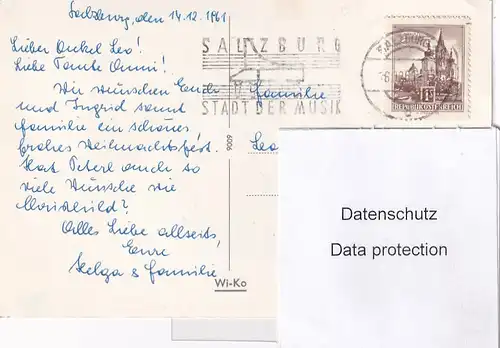 Salzburg, den 14.12.1961
Lieber Onkel Leo!
Liebe Tante Omni!
Wir wünschen Euch
und Ingrid samt
Familie ein schönes
frohes Weihnachtsfest.
Hat Peterl auch so
viele Wünsche wie
Alles Liebe allseits,
Eure
Helga & Familie
SALZBURG
STADT DER MUSIK
SALZBURG
REPUBLIK ÖSTERREICH
Familie
Leo
9009
Wi-Ko
Datenschutz
Data protection